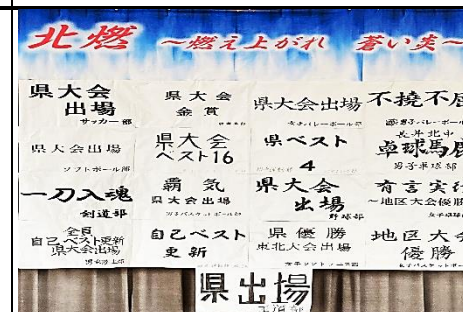 北燃 ～燃え上がれ 蒼い炎～
県大会
出場
サッカー部
県大会
金賞
県大会出場
女子バレーボール部
不撓不屈
男子バレーボール部
県大会出場
ソフトボール部
県大会
ベスト16
県ベスト
4
長井北中
卓球馬鹿
男子卓球部
一刀入魂
剣道部
覇気
県大会出場
男子バスケットボール部
県大会
出場
野球部
有言実行
～地区大会優勝
全員
自己ベスト更新
県大会出場
自己ベスト
更新
県優勝
東北大会出場
地区大会
優勝
県出場